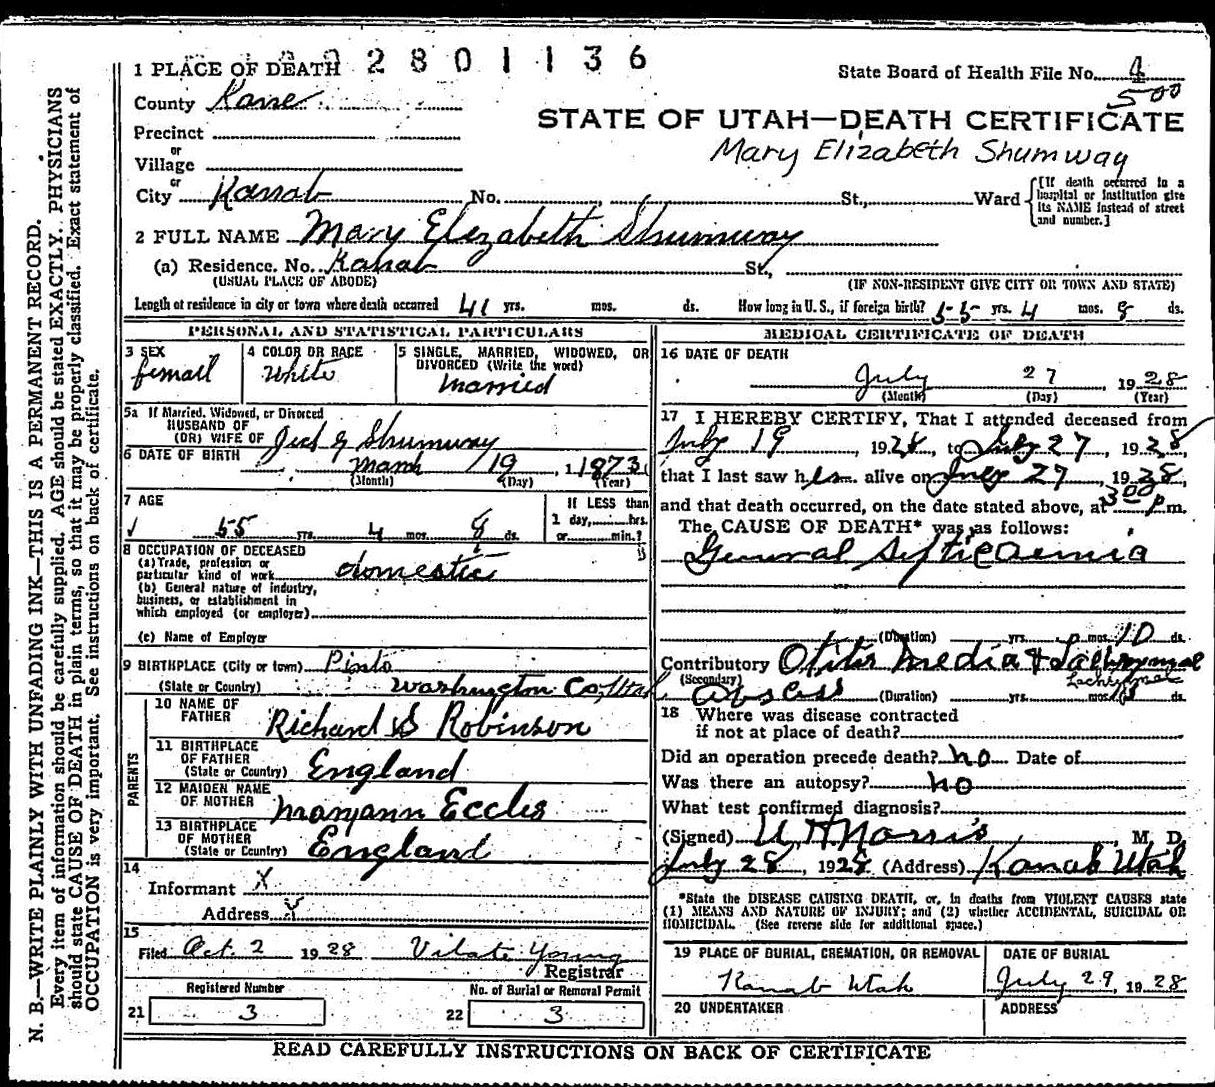 2801136
1 PLACE OF DEATH
State Board of Health File No. 4
500
County Kane
STATE OF UTAH—DEATH CERTIFICATE
Mary Elizabeth Shumway
Precinct
or
Village
or
City Kanab No. St., Ward
[If death occurred in a hospital or institution give its NAME instead of street and number.]
2 FULL NAME Mary Elizabeth Shumway
(a) Residence. No. Kanab St.,
(USUAL PLACE OF ABODE) (IF NON-RESIDENT GIVE CITY OR TOWN AND STATE)
Length of residence in city or town where death occurred 41 yrs. mos. ds. How long in U.S., if foreign birth? 55 yrs. 4 mos. 8 ds.
PERSONAL AND STATISTICAL PARTICULARS
3 SEX
femall
4 COLOR OR RACE
White
5 SINGLE, MARRIED, WIDOWED, OR
DIVORCED (Write the word)
married
5a If Married, Widowed, or Divorced
HUSBAND OF
(OR) WIFE OF Shumway
6 DATE OF BIRTH March 19, 1873
(Month) (Day) (Year)
7 AGE
55 yrs. 4 mos. 8 ds.
If LESS than
1 day, hrs.
or min.?
8 OCCUPATION OF DECEASED
(a) Trade, profession or
particular kind of work domestic
(b) General nature of industry,
business, or establishment in
which employed (or employer)
(c) Name of Employer
9 BIRTHPLACE (City or town) Pinto
(State or Country) Washington Co, Utah
PARENTS
10 NAME OF
FATHER Richard S Robinson
11 BIRTHPLACE
OF FATHER
(State or Country) England
12 MAIDEN NAME
OF MOTHER Maryann Eccles
13 BIRTHPLACE
OF MOTHER
(State or Country) England
14
Informant X
Address
15
Filed Oct. 2 1928 Vilate Young
Registrar
Registered Number No. of Burial or Removal Permit
21 3 22 3
MEDICAL CERTIFICATE OF DEATH
16 DATE OF DEATH
July 27, 1928
(Month) (Day) (Year)
17 I HEREBY CERTIFY, That I attended deceased from
July 19, 1928, to July 27, 1928,
that I last saw her alive on July 27, 1928,
and that death occurred, on the date stated above, at 3 00 P m.
The CAUSE OF DEATH* was as follows:
General Septicaemia
(Duration) yrs. mos. 10 ds.
Contributory Otitis Media + Lachrymal
(Secondary) Lachrymal
Abscess (Duration) yrs. mos. ds.
18 Where was disease contracted
if not at place of death?
Did an operation precede death? no Date of
Was there an autopsy? no
What test confirmed diagnosis?
(Signed) Norris M. D.
July 28, 1928 (Address) Kanab Utah
*State the DISEASE CAUSING DEATH, or, in deaths from VIOLENT CAUSES state
(1) MEANS AND NATURE OF INJURY; and (2) whether ACCIDENTAL, SUICIDAL OR
HOMICIDAL. (See reverse side for additional space.)
19 PLACE OF BURIAL, CREMATION, OR REMOVAL
Kanab Utah
DATE OF BURIAL
July 29, 1928
20 UNDERTAKER
ADDRESS
READ CAREFULLY INSTRUCTIONS ON BACK OF CERTIFICATE
N. B.—WRITE PLAINLY WITH UNFADING INK—THIS IS A PERMANENT RECORD.
Every item of information should be carefully supplied. AGE should be stated EXACTLY. PHYSICIANS
should state CAUSE OF DEATH in plain terms, so that it may be properly classified. Exact statement of
OCCUPATION is very important. See instructions on back of certificate.